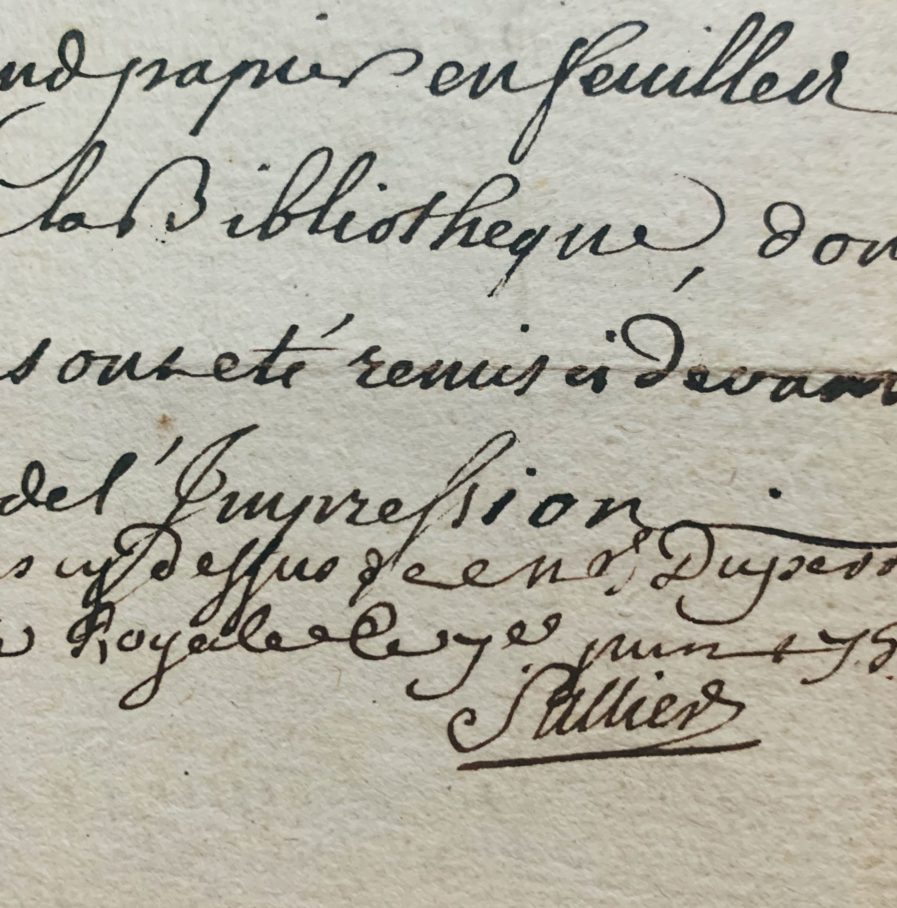 nd papier en feuilles
la Bibliotheque, don
s ont eté remis ci devant
de l'Impression
cy dessus de
Royale le 7e juin 175
Sallier